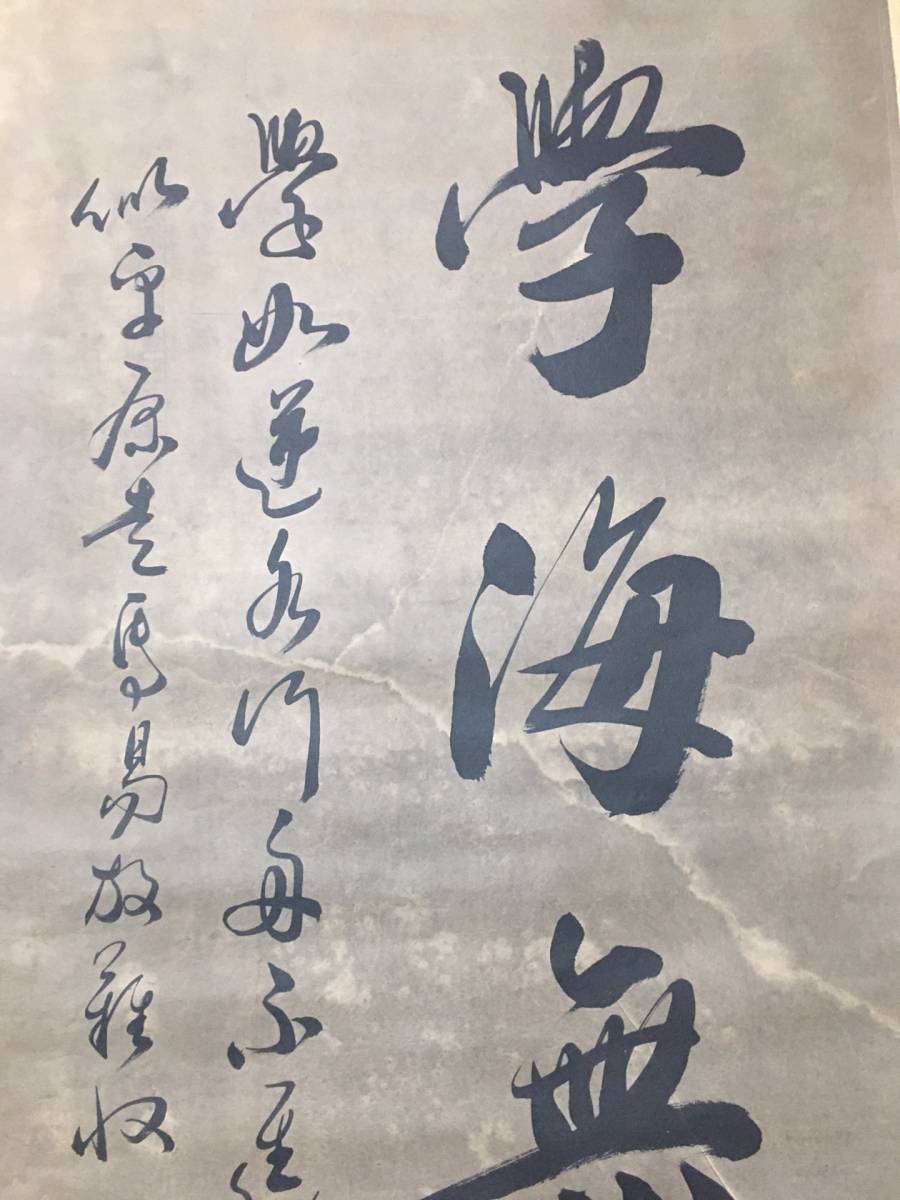 學海無
學如逆水行舟不進
似平原走馬易放難收